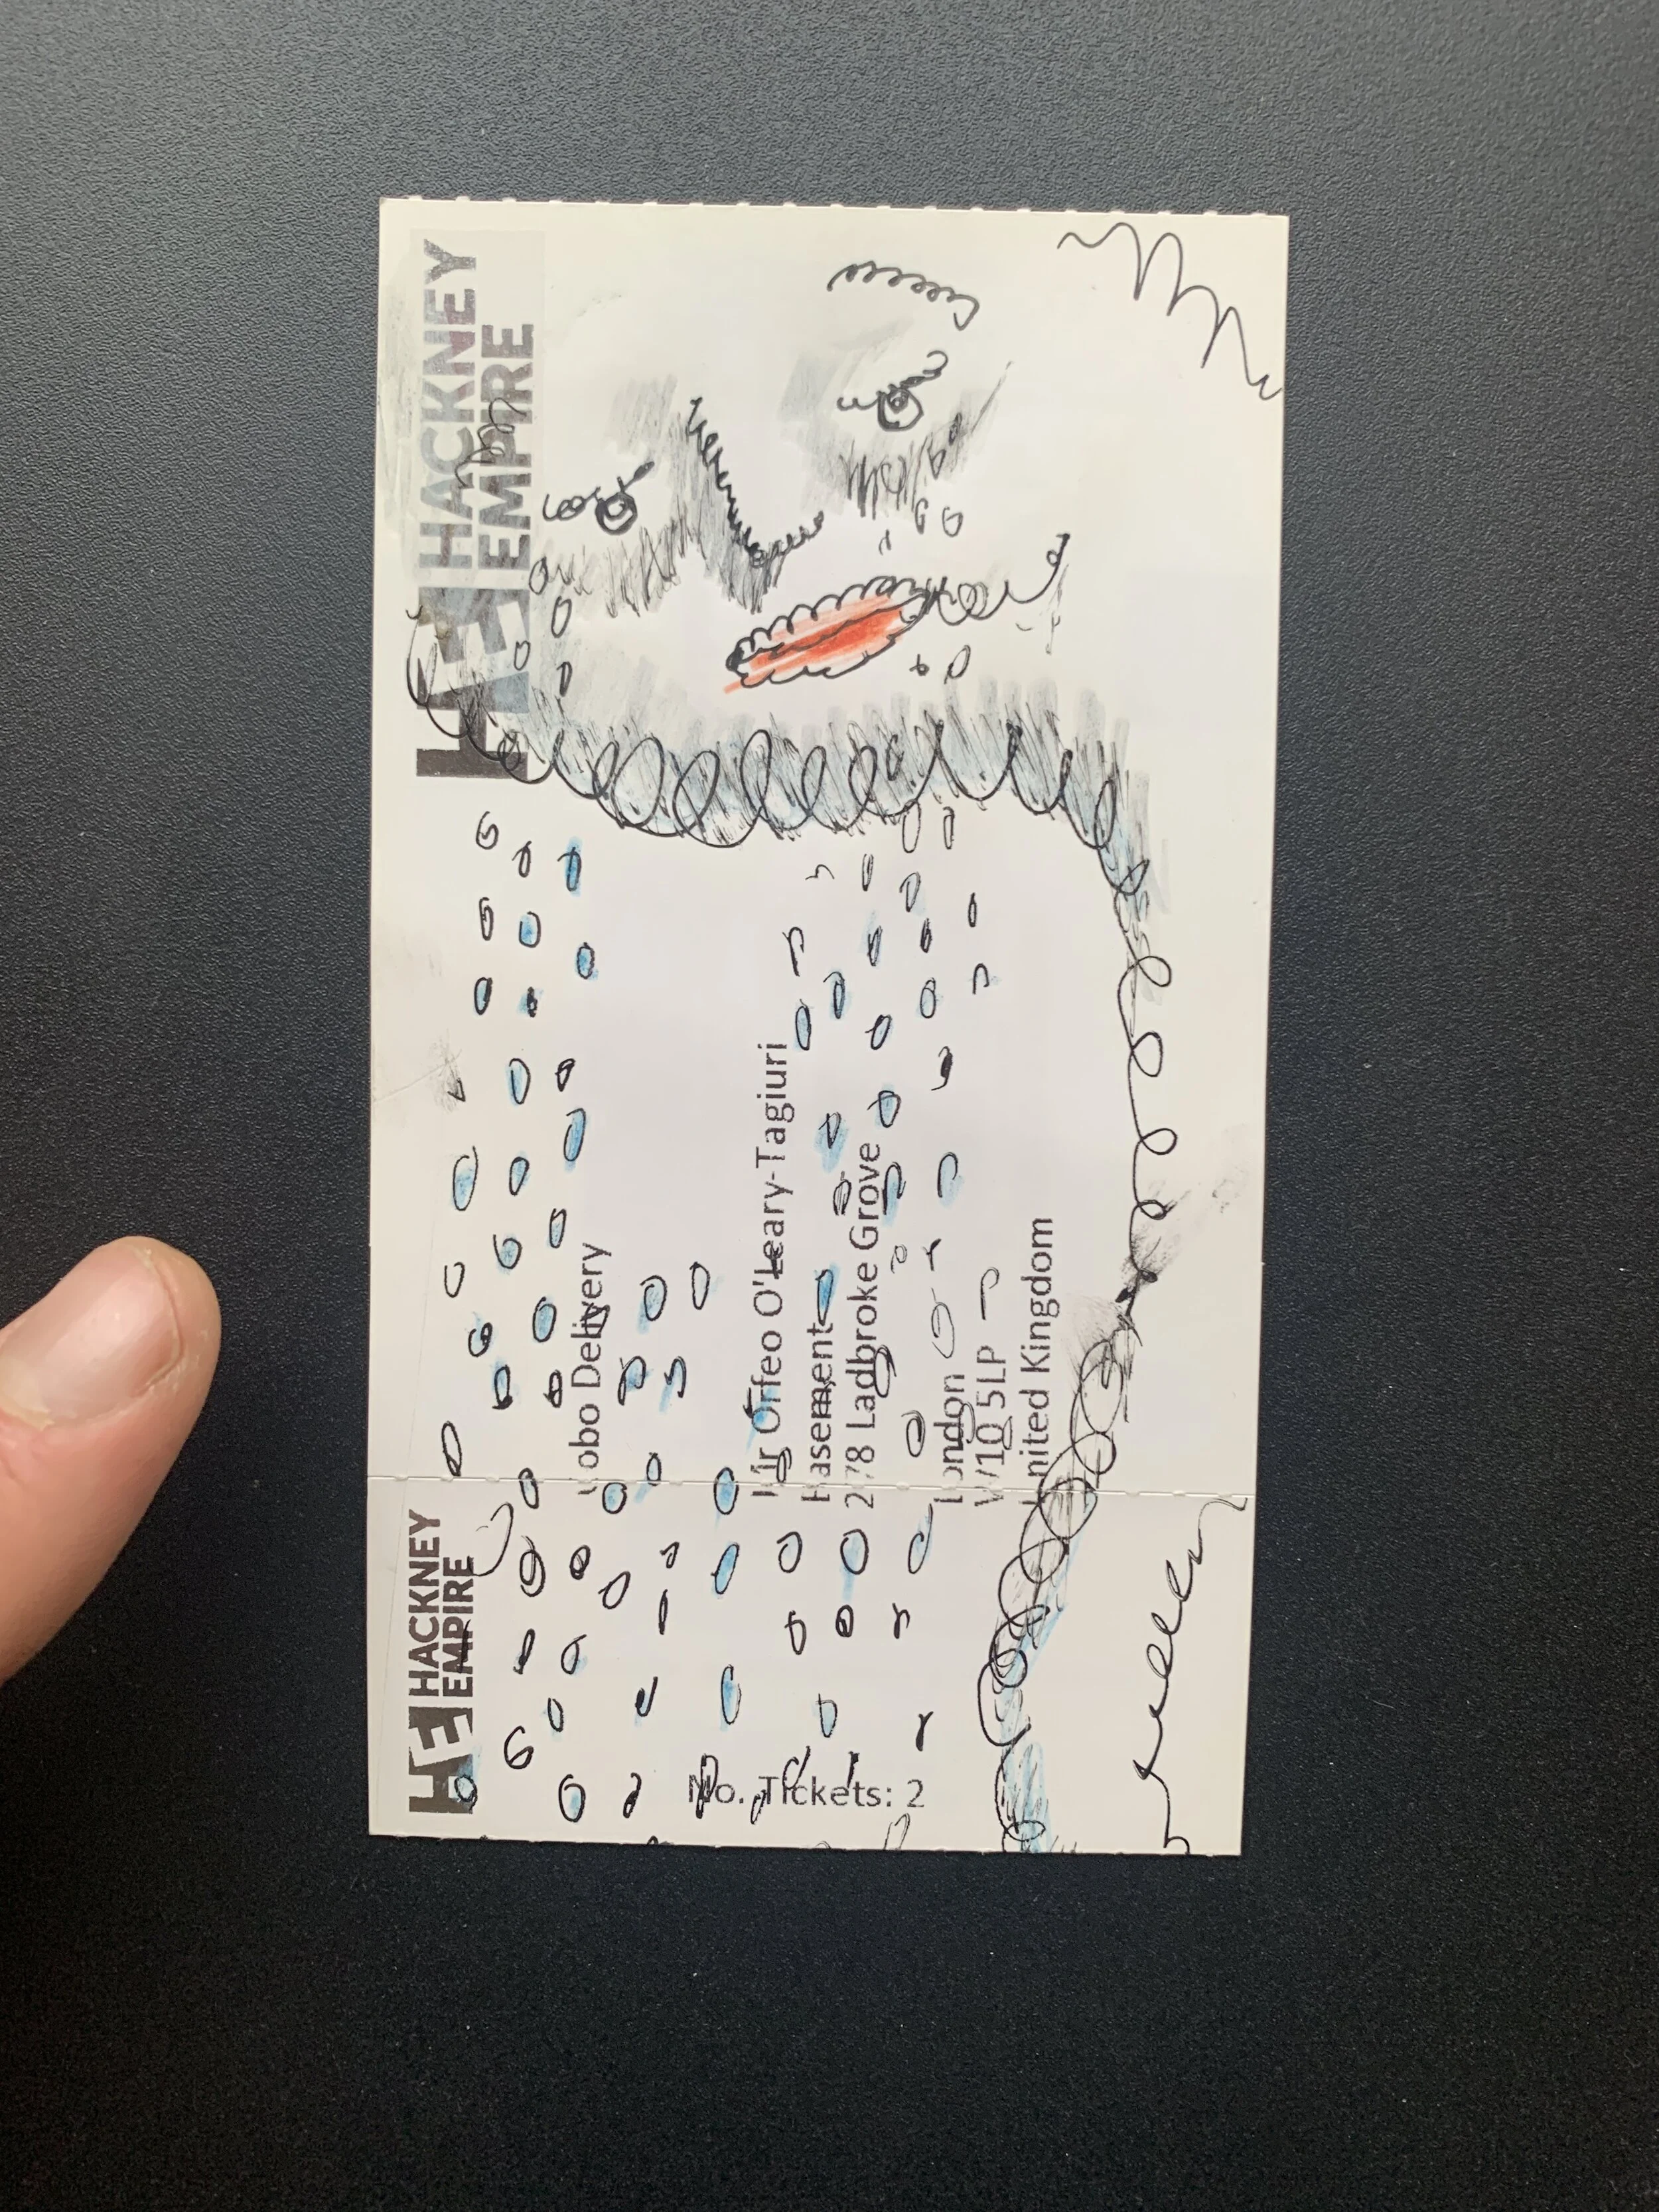 HACKNEY
EMPIRE
Hobo Delivery
Mr Orfeo O'Leary-Tagiuri
Basement
278 Ladbroke Grove
London
W10 5LP
United Kingdom
HACKNEY
EMPIRE
No. Tickets: 2